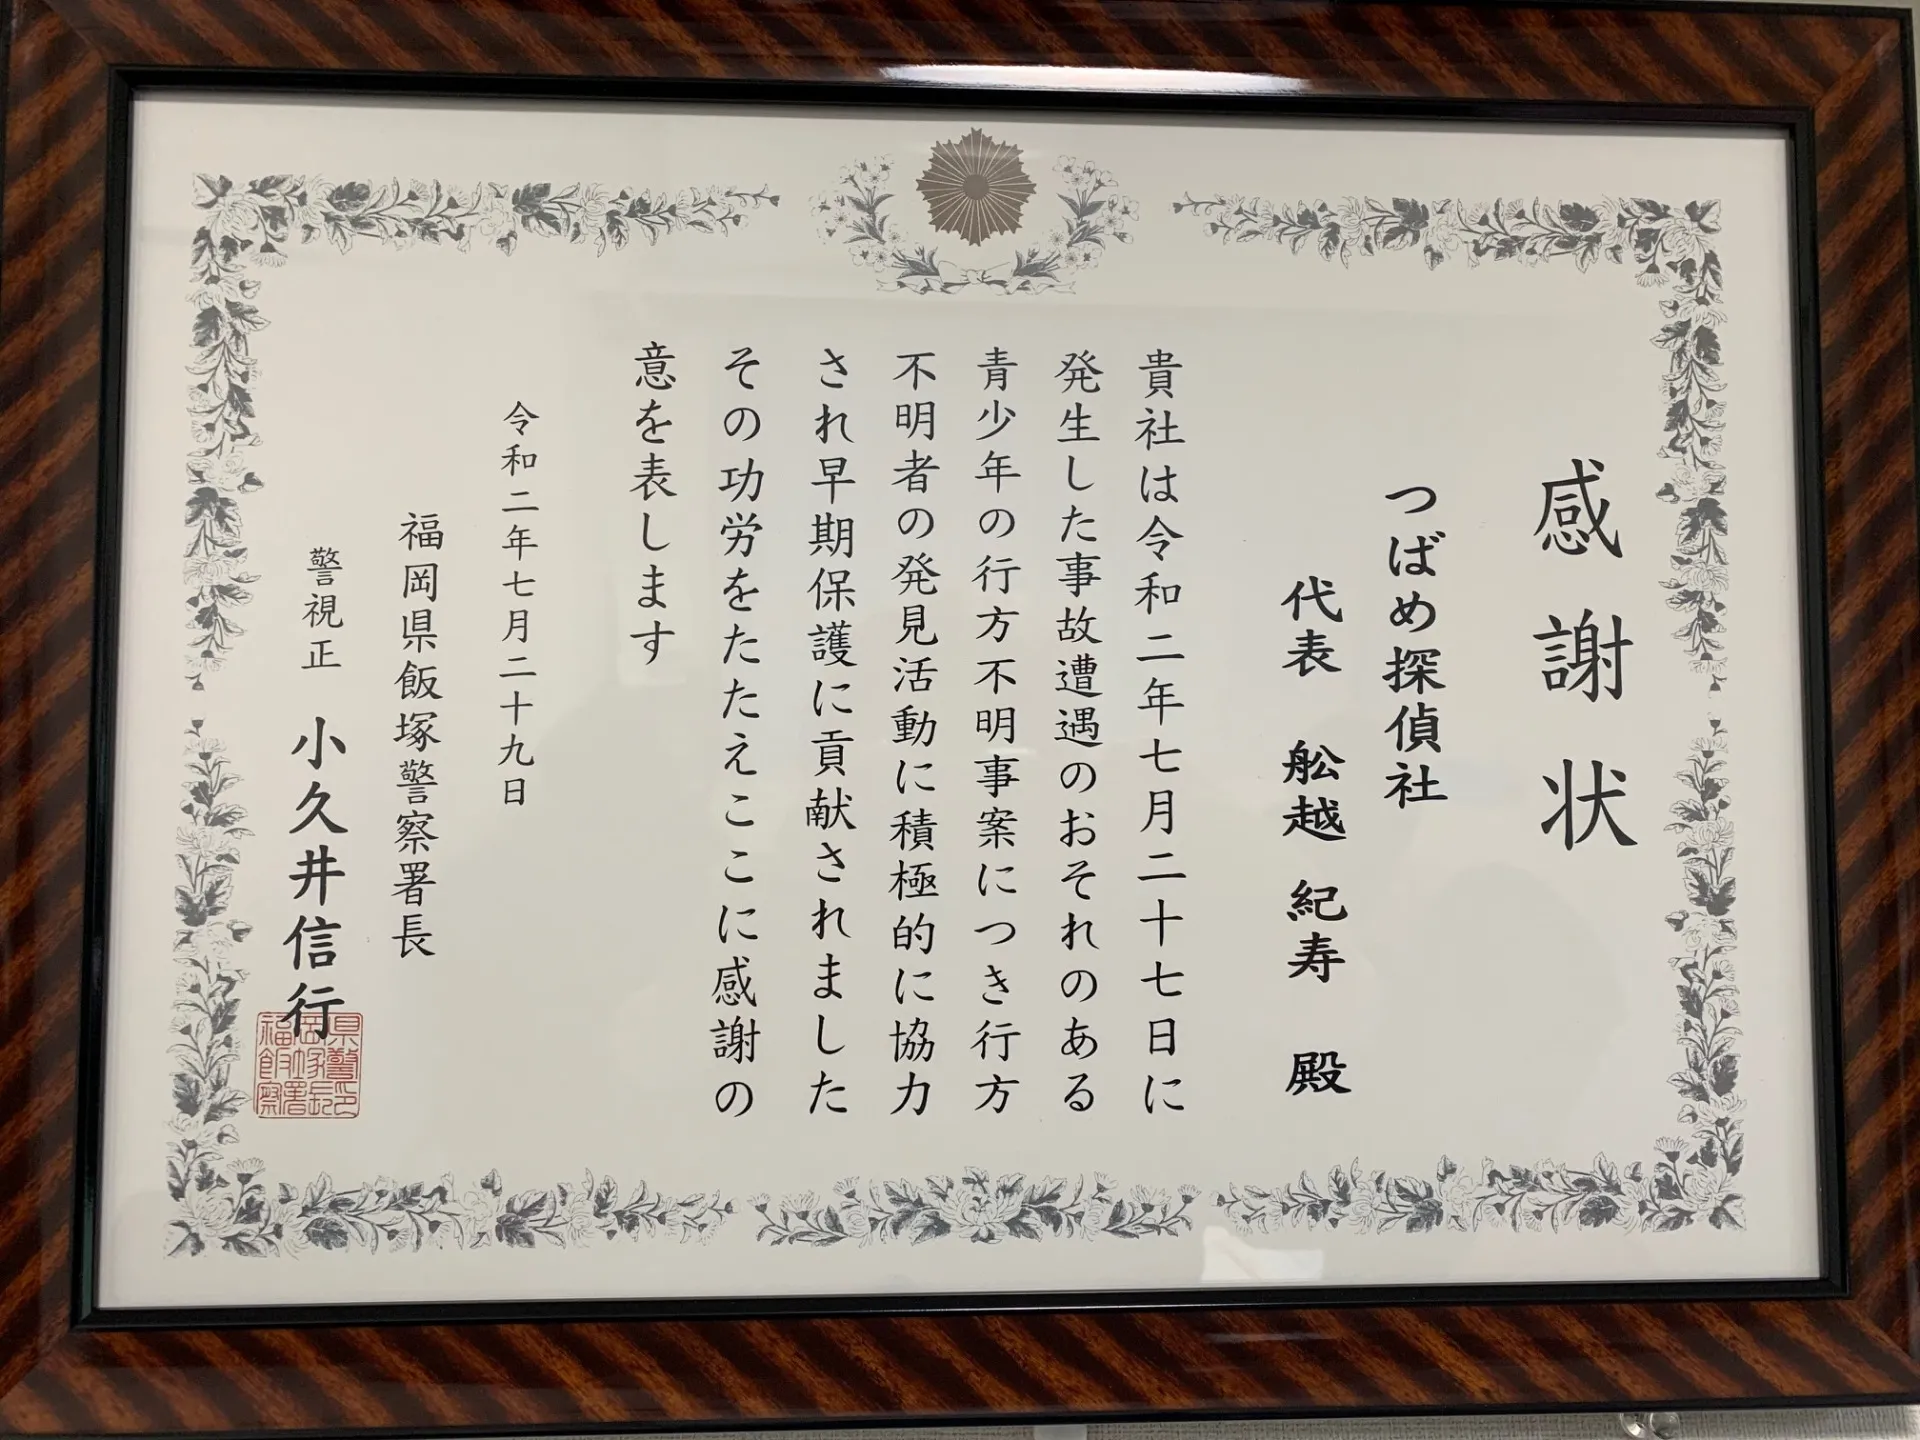 感謝状
つばめ探偵社
代表 舩越 紀寿 殿
貴社は令和二年七月二十七日に
発生した事故遭遇のおそれのある
青少年の行方不明事案につき行方
不明者の発見活動に積極的に協力
され早期保護に貢献されました
その功労をたたえここに感謝の
意を表します
令和二年七月二十九日
福岡県飯塚警察署長
警視正 小久井信行
県警印
岡塚署長
福飯察